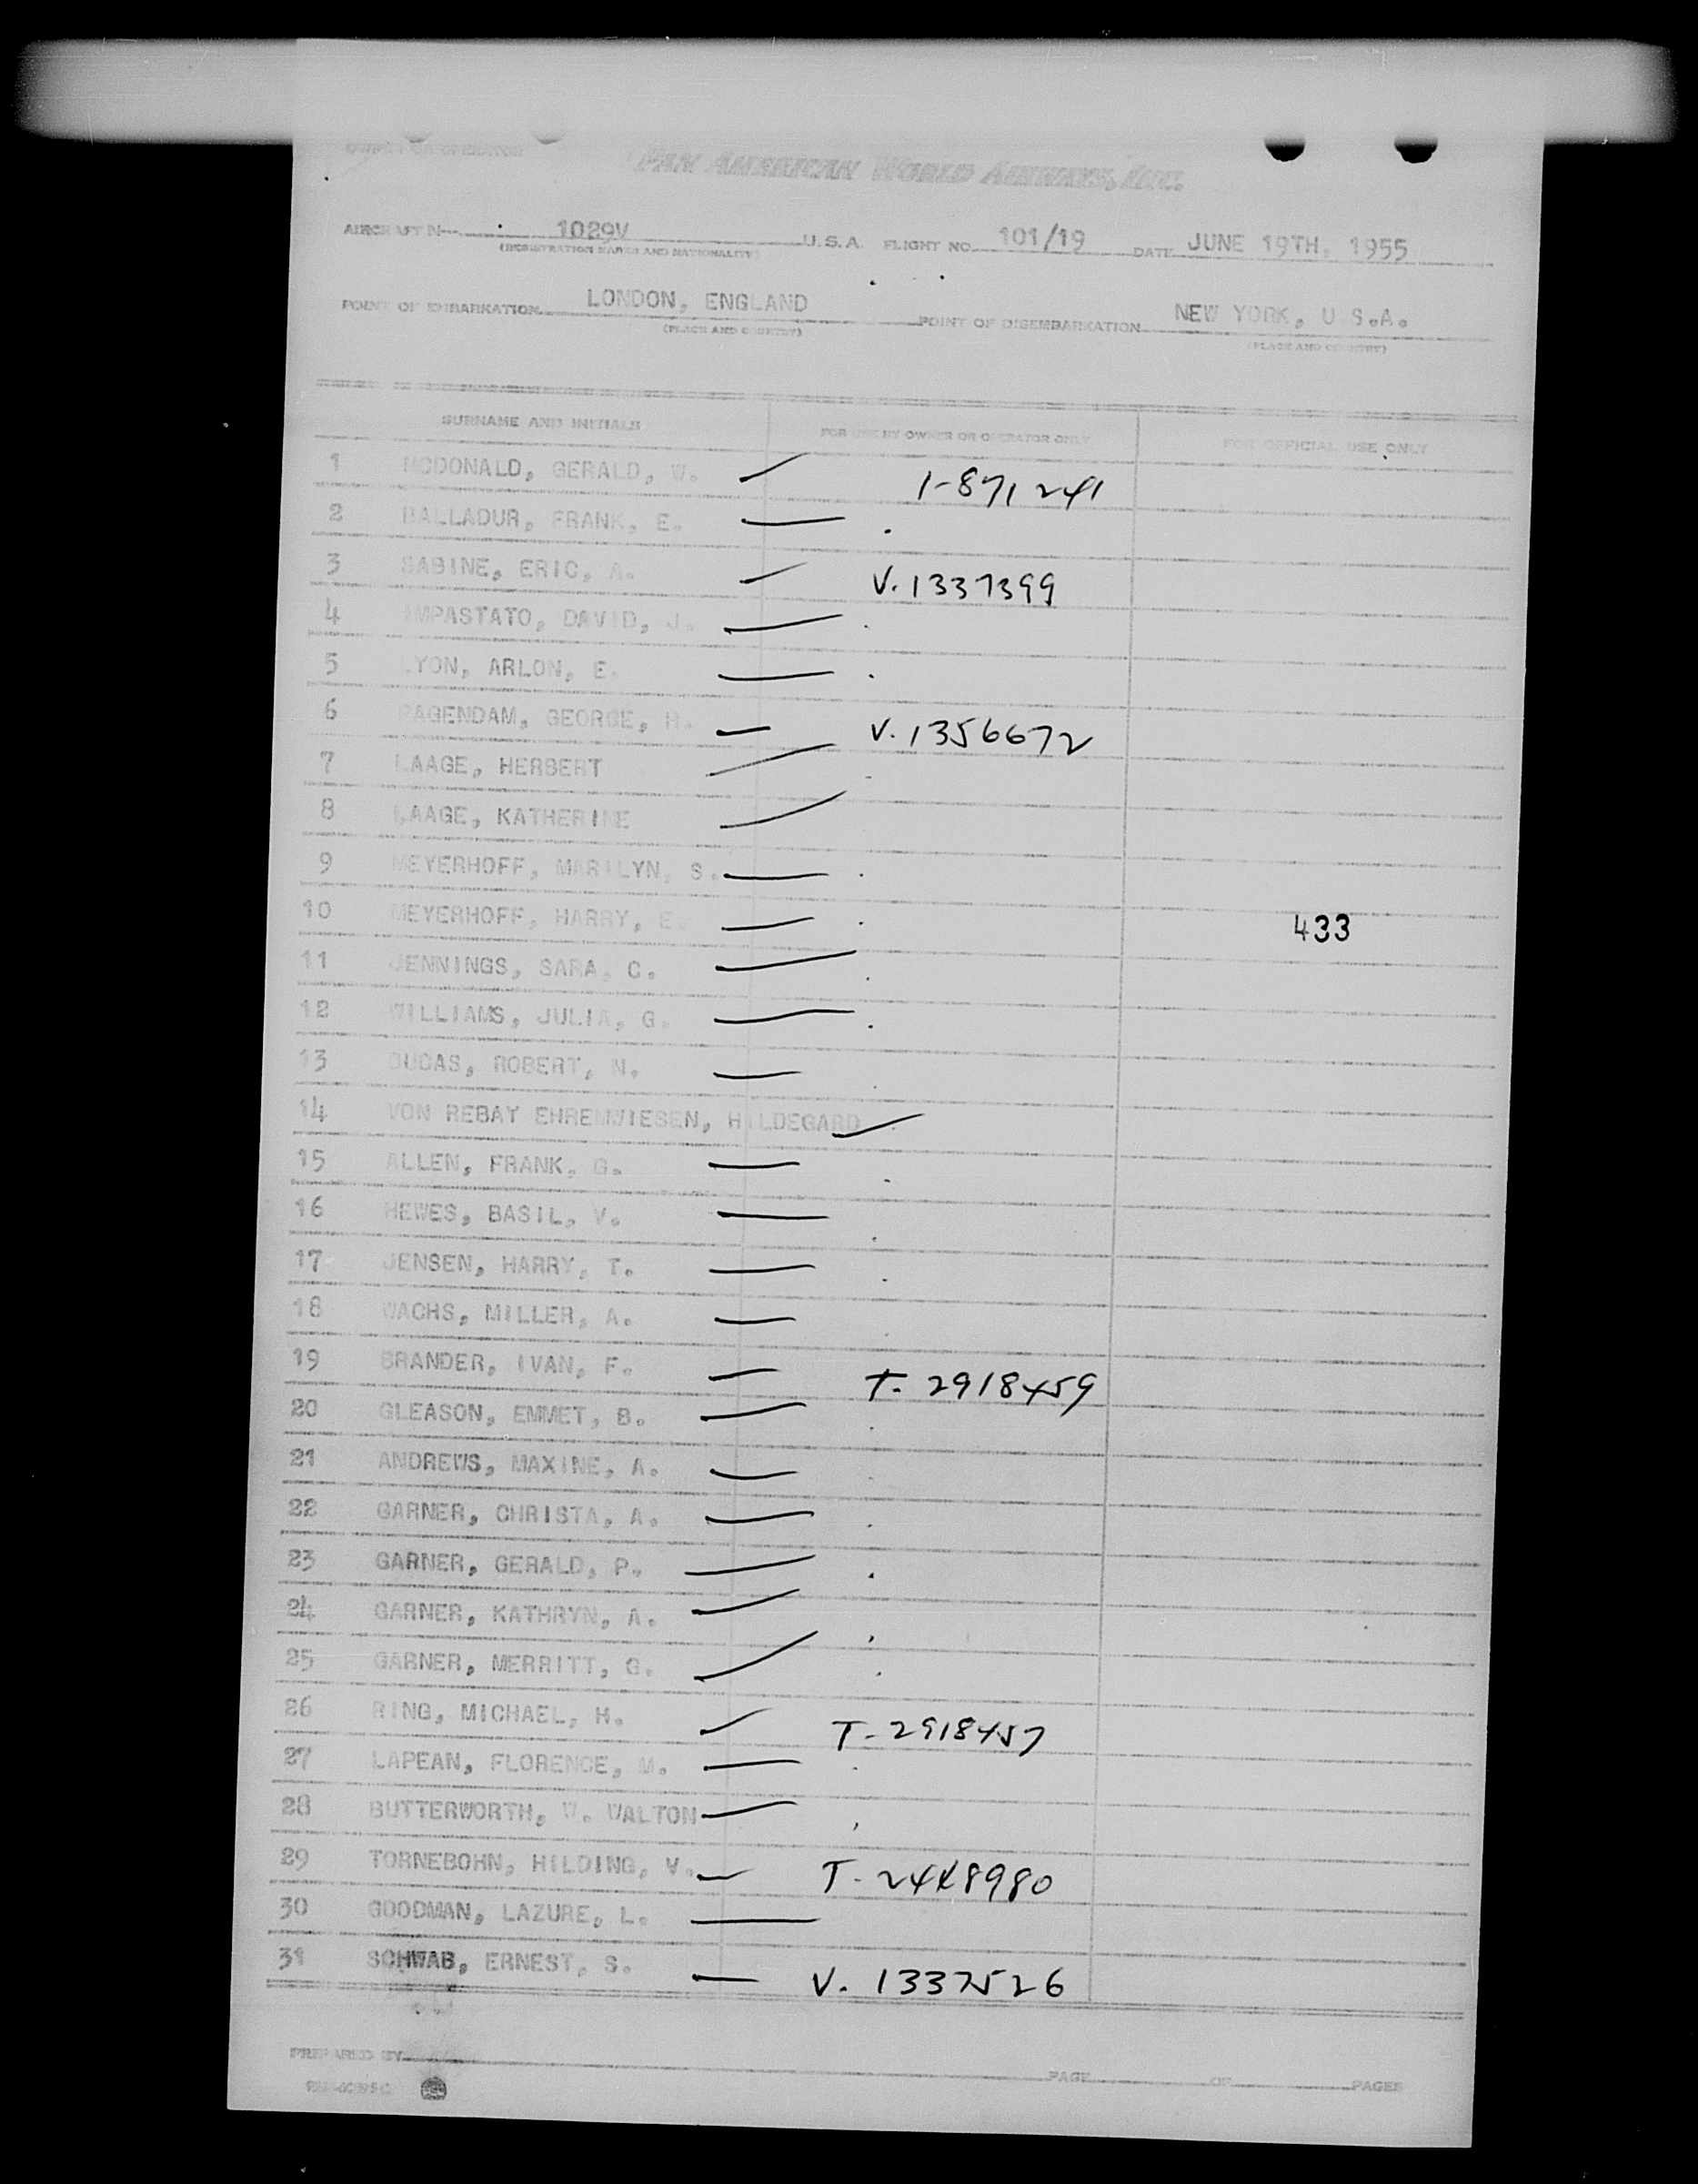 OWNER OR OPERATOR PAN AMERICAN WORLD AIRWAYS, INC.
AIRCRAFT N— 1029V U.S.A. FLIGHT NO. 101/19 DATE JUNE 19TH, 1955
(REGISTRATION MARKS AND NATIONALITY)
POINT OF EMBARKATION LONDON, ENGLAND POINT OF DISEMBARKATION NEW YORK, U.S.A.
(PLACE AND COUNTRY) (PLACE AND COUNTRY)
SURNAME AND INITIALS FOR USE BY OWNER OR OPERATOR ONLY FOR OFFICIAL USE ONLY
1 MCDONALD, GERALD, W. 1-871241
2 BALLADUR, FRANK, E.
3 SABINE, ERIC, A. V. 1337399
4 IMPASTATO, DAVID, J.
5 LYON, ARLON, E.
6 RAGENDAM, GEORGE, H. V. 1356672
7 LAAGE, HERBERT
8 LAAGE, KATHERINE
9 MEYERHOFF, MARILYN, S.
10 MEYERHOFF, HARRY, E 433
11 JENNINGS, SARA, C.
12 WILLIAMS, JULIA, G.
13 DUCAS, ROBERT, N.
14 VON REBAY EHRENWIESEN, HILDEGARD
15 ALLEN, FRANK, G.
16 HEWES, BASIL, V.
17 JENSEN, HARRY, T.
18 WACHS, MILLER, A.
19 BRANDER, IVAN, F. T- 2918459
20 GLEASON, EMMET, B.
21 ANDREWS, MAXINE, A.
22 GARNER, CHRISTA, A.
23 GARNER, GERALD, P.
24 GARNER, KATHRYN, A.
25 GARNER, MERRITT, G.
26 RING, MICHAEL, H. T-2918457
27 LAPEAN, FLORENCE, M.
28 BUTTERWORTH, W. WALTON
29 TORNEBOHN, HILDING, V. T-2448980
30 GOODMAN, LAZURE, L.
31 SCHWAB, ERNEST, S. V. 1337526
PREPARED BY PAGE OF PAGES